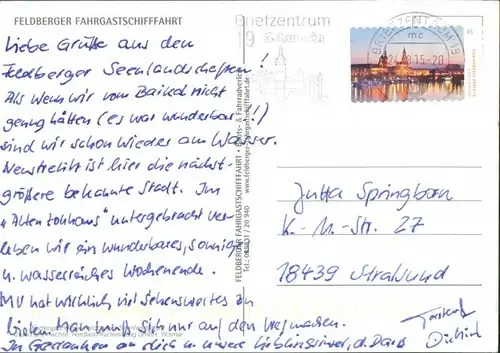 FELDBERGER FAHRGASTSCHIFFFAHRT
Liebe Grüße aus den
Feldberger Seenlandschaften!
Als wenn wir vom Baikal nicht
genug hätten (es war wunderbar!!)
sind wir schon wieder am Wasser.
Neustrelitz ist hier die nächst-
größere bekannte Stadt. Im
untergebracht ver-
leben wir ein wunderbares, sonniges
u. wasserreiches Wochenende.
MV hat wirklich viel Sehenswertes zu
bieten. Man muß sich nur auf den Weg machen.
In Gedanken an dich u. unsere
FELDBERGER FAHRGASTSCHIFFFAHRT
Briefzentrum
19
BRIEFZENTRUM 19
mc
15-20
45
Jutta Springborn
K.-M.-Str. 27
18439 Stralsund
Dietrich